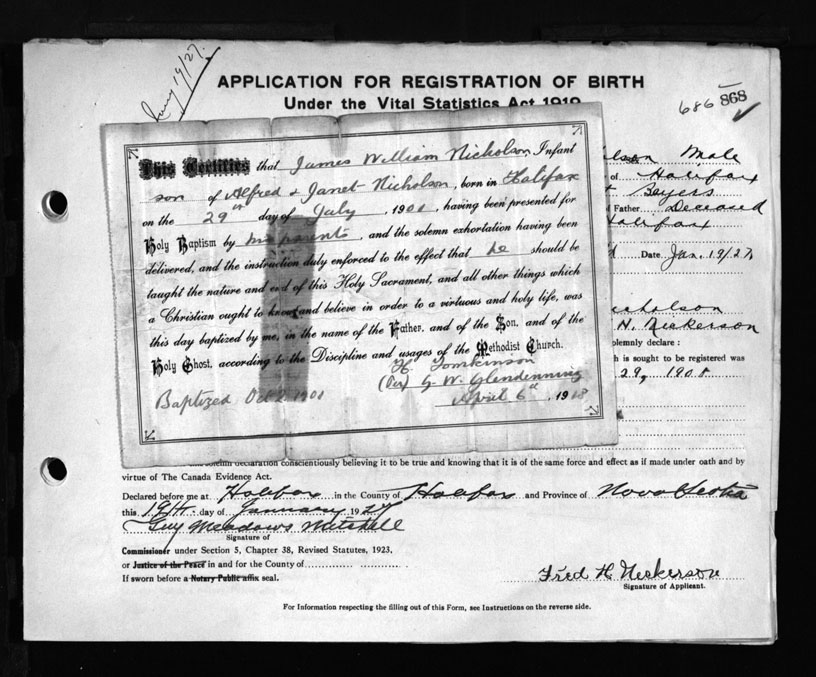 Jany 19/27.
APPLICATION FOR REGISTRATION OF BIRTH
Under the Vital Statistics Act 1919
686 868
This Certifies that James William Nicholson Infant
son of Alfred & Janet Nicholson, born in Halifax
on the 29th day of July, 1908, having been presented for
Holy Baptism by his parents, and the solemn exhortation having been
delivered, and the instruction duly enforced to the effect that he should be
taught the nature and end of this Holy Sacrament, and all other things which
a Christian ought to know and believe in order to a virtuous and holy life, was
this day baptized by me, in the name of the Father, and of the Son, and of the
Holy Ghost, according to the Discipline and usages of the Methodist Church.
H. Tomkinson
(Per) G. W. Glendenning
Baptized Oct 1908
April 6th, 1918
Male
of Halifax
Beyers
Father Deceased
Halifax
Date Jan. 19/27
Nicholson
H. Nickerson
solemnly declare :
is sought to be registered was
29, 1908
solemn declaration conscientiously believing it to be true and knowing that it is of the same force and effect as if made under oath and by
virtue of The Canada Evidence Act.
Declared before me at Halifax in the County of Halifax and Province of Nova Scotia
this 19th day of January 1927
Guy Meadows Mitchell
Signature of
Commissioner under Section 5, Chapter 38, Revised Statutes, 1923,
or Justice of the Peace in and for the County of
If sworn before a Notary Public affix seal.
Fred H. Nickerson
Signature of Applicant.
For Information respecting the filling out of this Form, see Instructions on the reverse side.